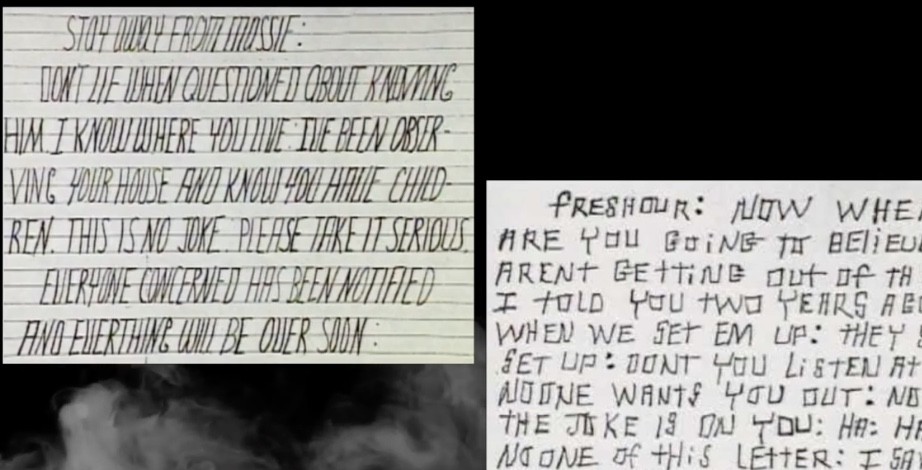 STAY AWAY FROM MASSIE:
DON'T LIE WHEN QUESTIONED ABOUT KNOWING
HIM. I KNOW WHERE YOU LIVE: I'VE BEEN OBSER-
VING YOUR HOUSE AND KNOW YOU HAVE CHILD-
REN. THIS IS NO JOKE. PLEASE TAKE IT SERIOUS.
EVERYONE CONCERNED HAS BEEN NOTIFIED
AND EVERTHING WILL BE OVER SOON:
FRESHOUR: NOW WHE
ARE YOU GOING TO BELIEV
ARENT GETTING OUT OF TH
I TOLD YOU TWO YEARS AG
WHEN WE SET EM UP: THEY S
SET UP: DONT YOU LISTEN AT
NOONE WANTS YOU OUT: NO
THE JOKE IS ON YOU: HA: HA
NOONE OF THIS LETTER: I SA